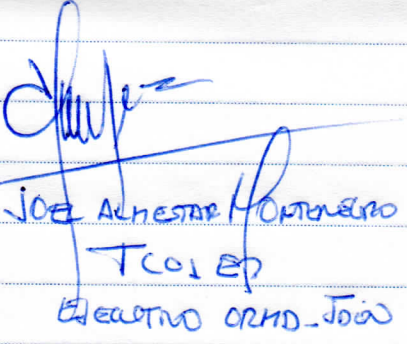 JOEL ALMESTAR MONTENEGRO
TCO1 EP
EJECUTIVO ORMD_